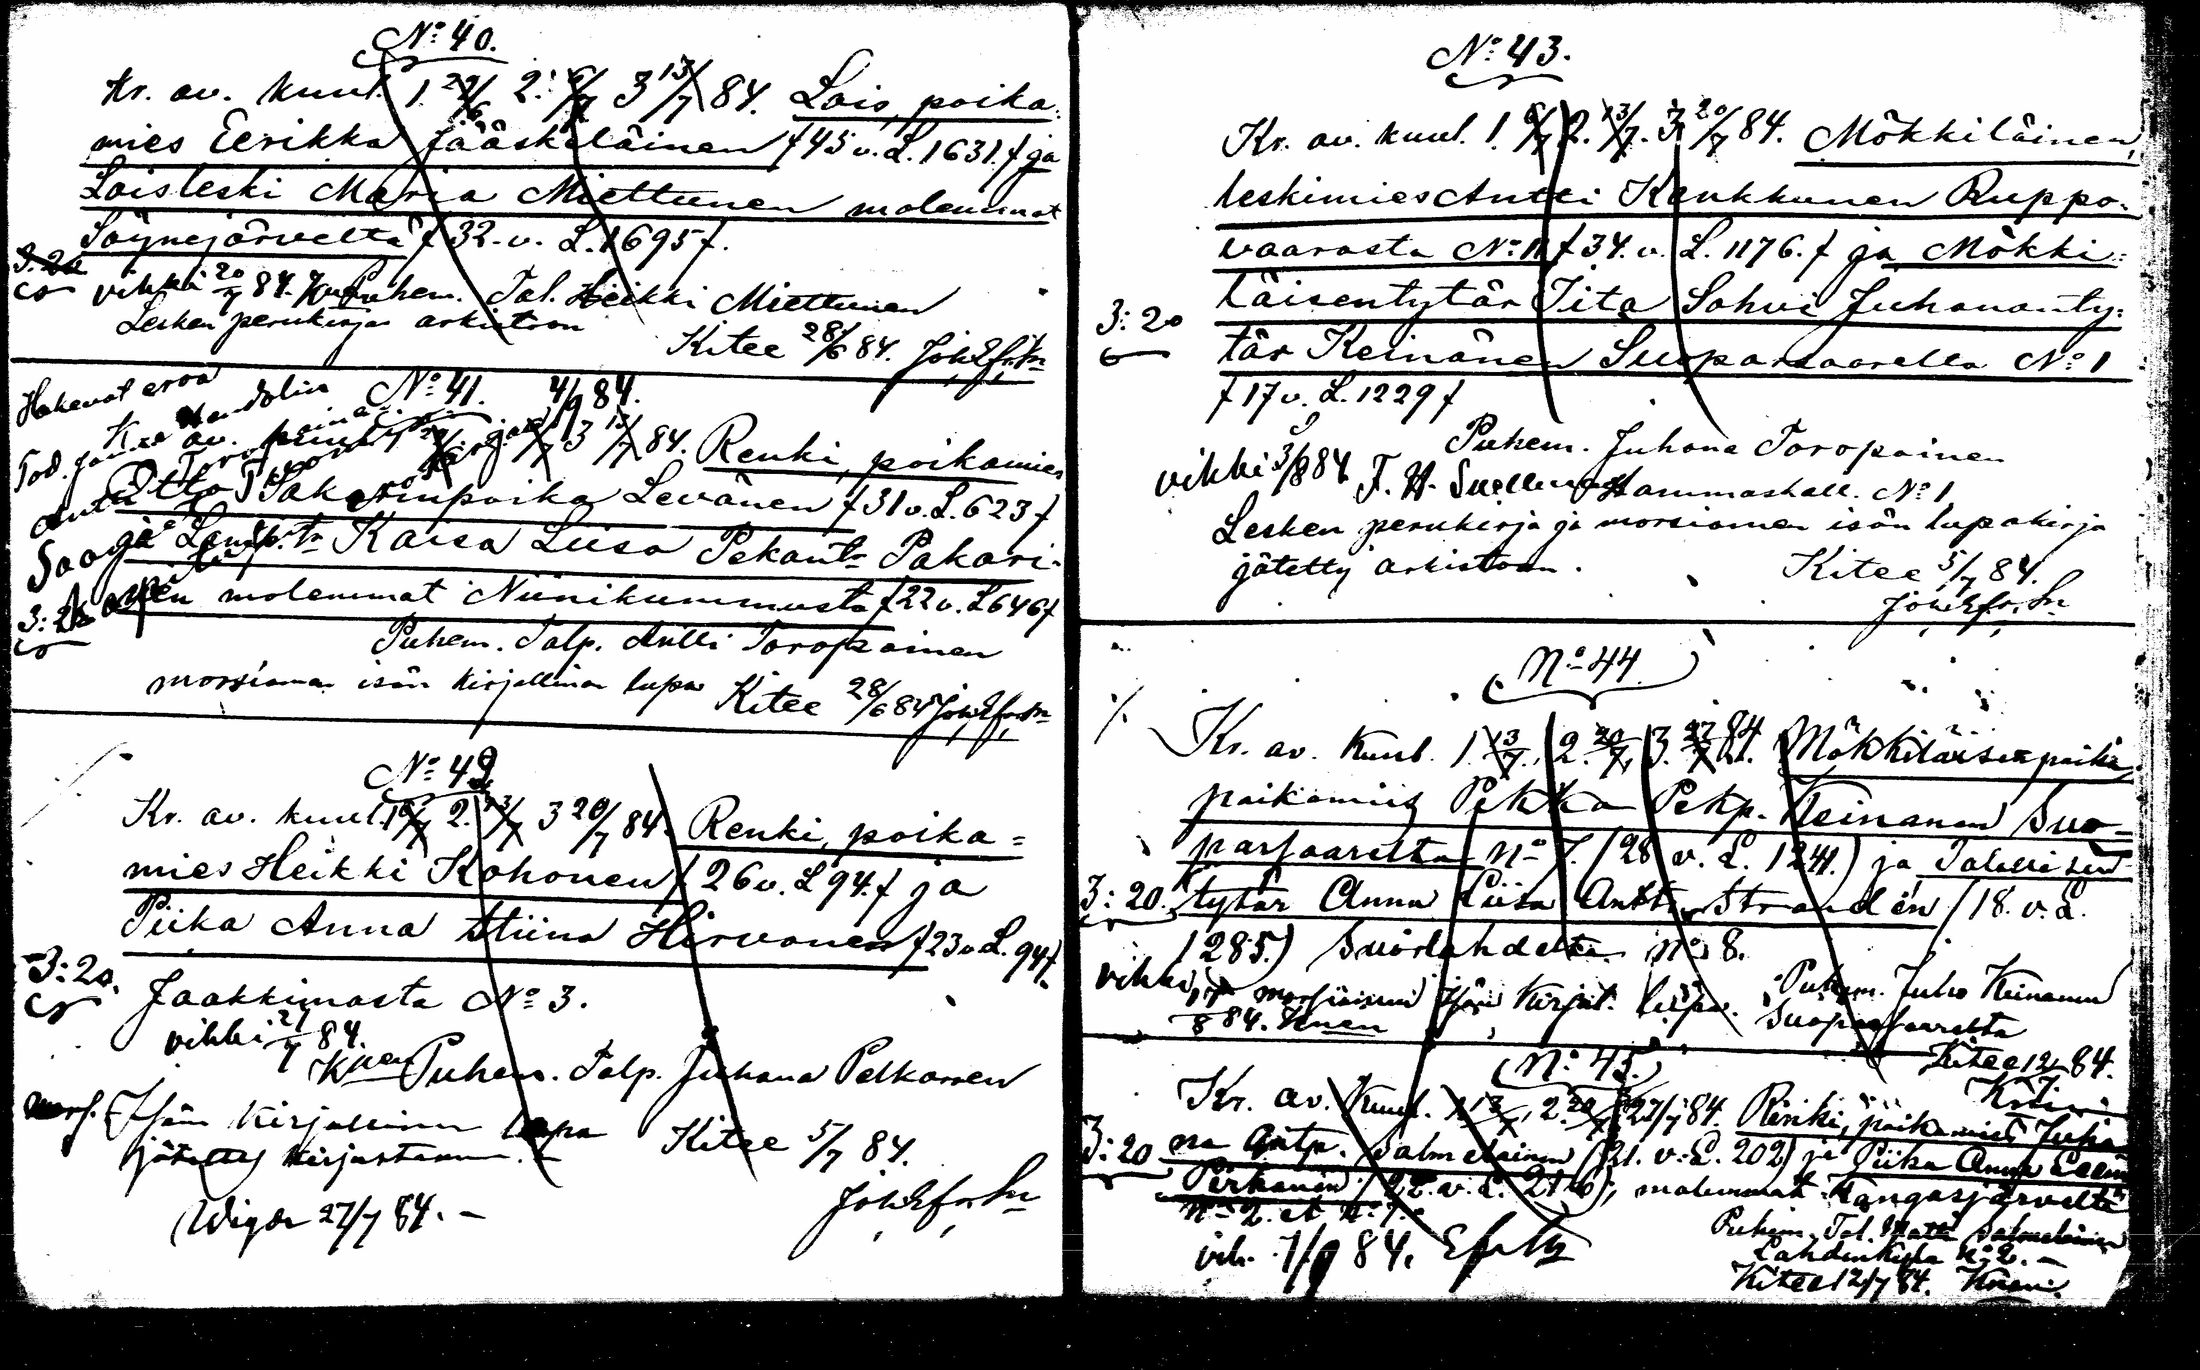 No 40.
Kr. av. kuul. 1. 29/6 2. 6/7 3 13/7 84. Lois, poika-
mies Eerikka Jääskeläinen /45 v. L. 1631./ ja
Loisleski Maria Miettunen molemmat
Säynejärveltä /32. v. L. 1695/.
3:20
vihki 20/7 84. Puhem. Tal. Heikki Miettunen
Lesken perukirja arkistoon
Kitee 28/6 84.
No 41. 4/9 84.
Hakevat eroa
Kr. av. 3 13/7 84. Renki, poikamies
Otto Sakarinpoika Levänen /31 v. L. 623/
ja Kaisa Liisa Pekantr Pakari-
nen molemmat Niinikummusta /22 v. L 646/
Puhem. Talp. Antti Toropainen
morsiaman isän kirjallinen lupa Kitee 28/6 84
No 42
Kr. av. kuul. 1 6/7 2. 13/7 3 20/7 84. Renki, poika=
mies Heikki Kohonen /26 v. L 94./ ja
Piika Anna Stiina Hirvonen /23 v. L. 94/.
3:20.
Jaakkimasta No 3.
vihki 27/7 84.
Puhem. Talp. Juhana Pelkonen
mors. Isän kirjallinen lupa Kitee 5/7 84.
jätetty kirjastoon.
Wigde 27/7 84. -
No 43.
Kr. av. kuul. 1. 6/7 2. 13/7. 3. 20/7 84. Mökkiläinen,
leskimies Antti Kaukkunen Ruppo-
vaarasta No 11 /34. v. L. 1176./ ja Mökki-
läisentytär Iita Sohvi Juhananty-
3:20
tär Keinänen Suoparsaarella No 1
/17 v. L. 1229/
Puhem. Juhana Toropainen
vihki 3/8 84 Hammaskall. No 1
Lesken perukirja ja morsiamen isän lupakirja
jätetty arkistoon. Kitee 5/7 84.
No 44
Kr. av. Kuul. 1. 13/7. 2. 20/7. 3. 27/7 84. Mökkiläisenpoika
poikamies Pekka Pekp. Keinänen Suo-
parsaarelta No 7. (28 v. L. 1241.) ja Talollisen
3:20. tytär Anna Liisa Antt. Strandén (18. v. L.
1285.) Suorlahdelta No 8.
vihki 17/8 84. morsiamen Isän Kirjal. lupa. Puhem. Juho Keinänen
Suoparsaarelta
Kitee 12/7 84.
No 45.
Kr. av. Kuul. 1. 13/7, 2. 20/7 27/7 84. Renki, poikamies Juha-
3:20 na Antp. Salmelainen (21. v. L. 202) ja Piika Anna
Pirhonen molemmat Kangasjärveltä
No 2. et
Puhem. Tal. Matti Salmelainen
Lahdenkylä No 2. -
vih. 7/9 84.
Kitee 12/7 84.